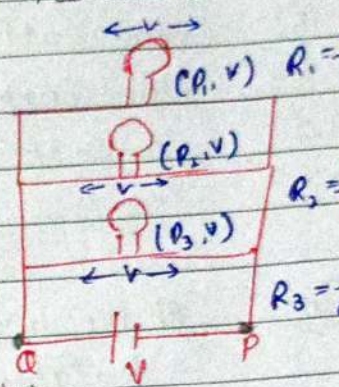 V
(P₁, V) R₁ =
(P₂, V)
V
R₂ =
(P₃, V)
V
R₃ =
Q V P